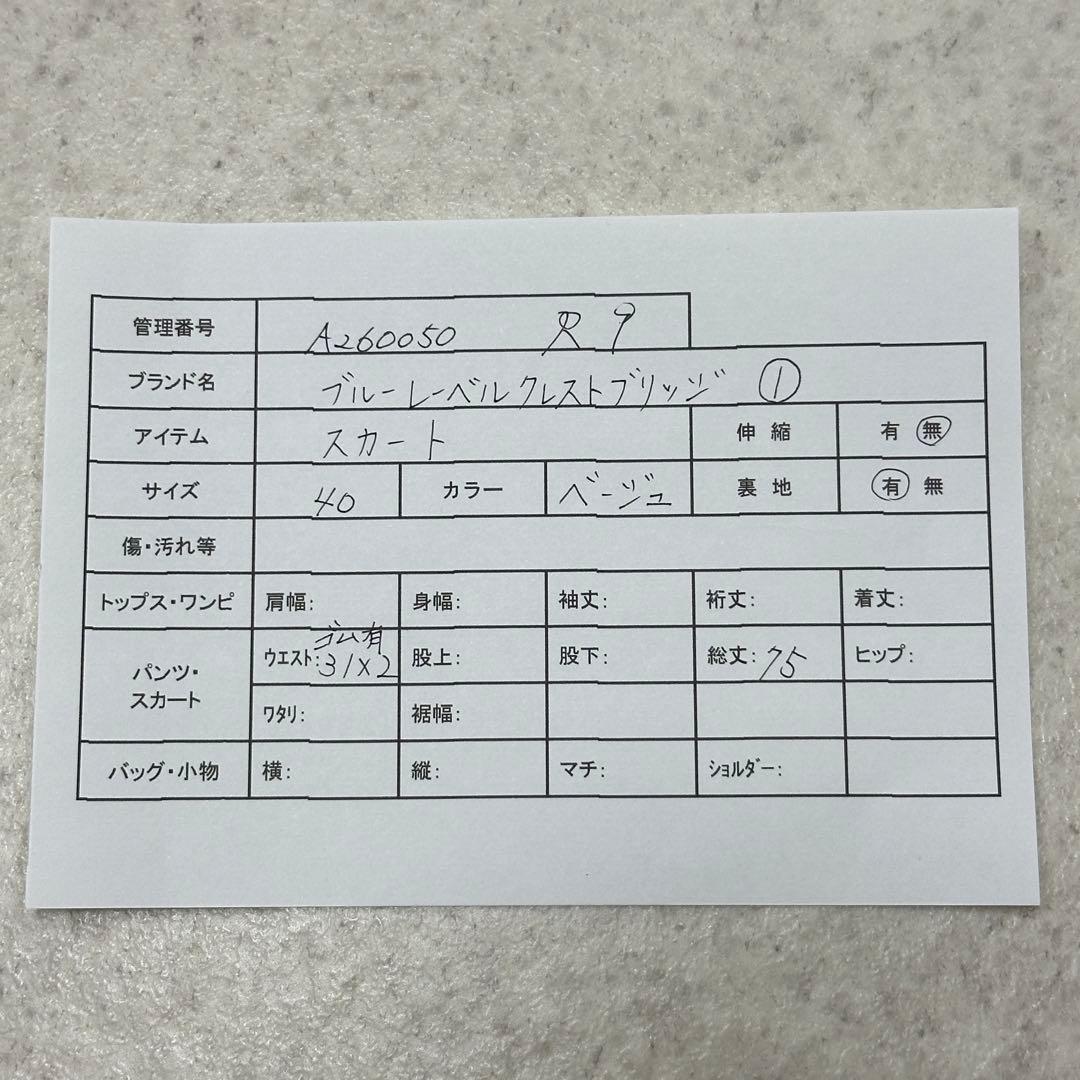 管理番号 A260050 R 9
ブランド名 ブルーレーベルクレストブリッジ ①
アイテム スカート 伸縮 有 無
サイズ 40 カラー ベージュ 裏地 有 無
傷・汚れ等
トップス・ワンピ 肩幅: 身幅: 袖丈: 裄丈: 着丈:
パンツ・スカート ウエスト: ゴム有 31×2 股上: 股下: 総丈: 75 ヒップ:
ワタリ: 裾幅:
バッグ・小物 横: 縦: マチ: ショルダー: